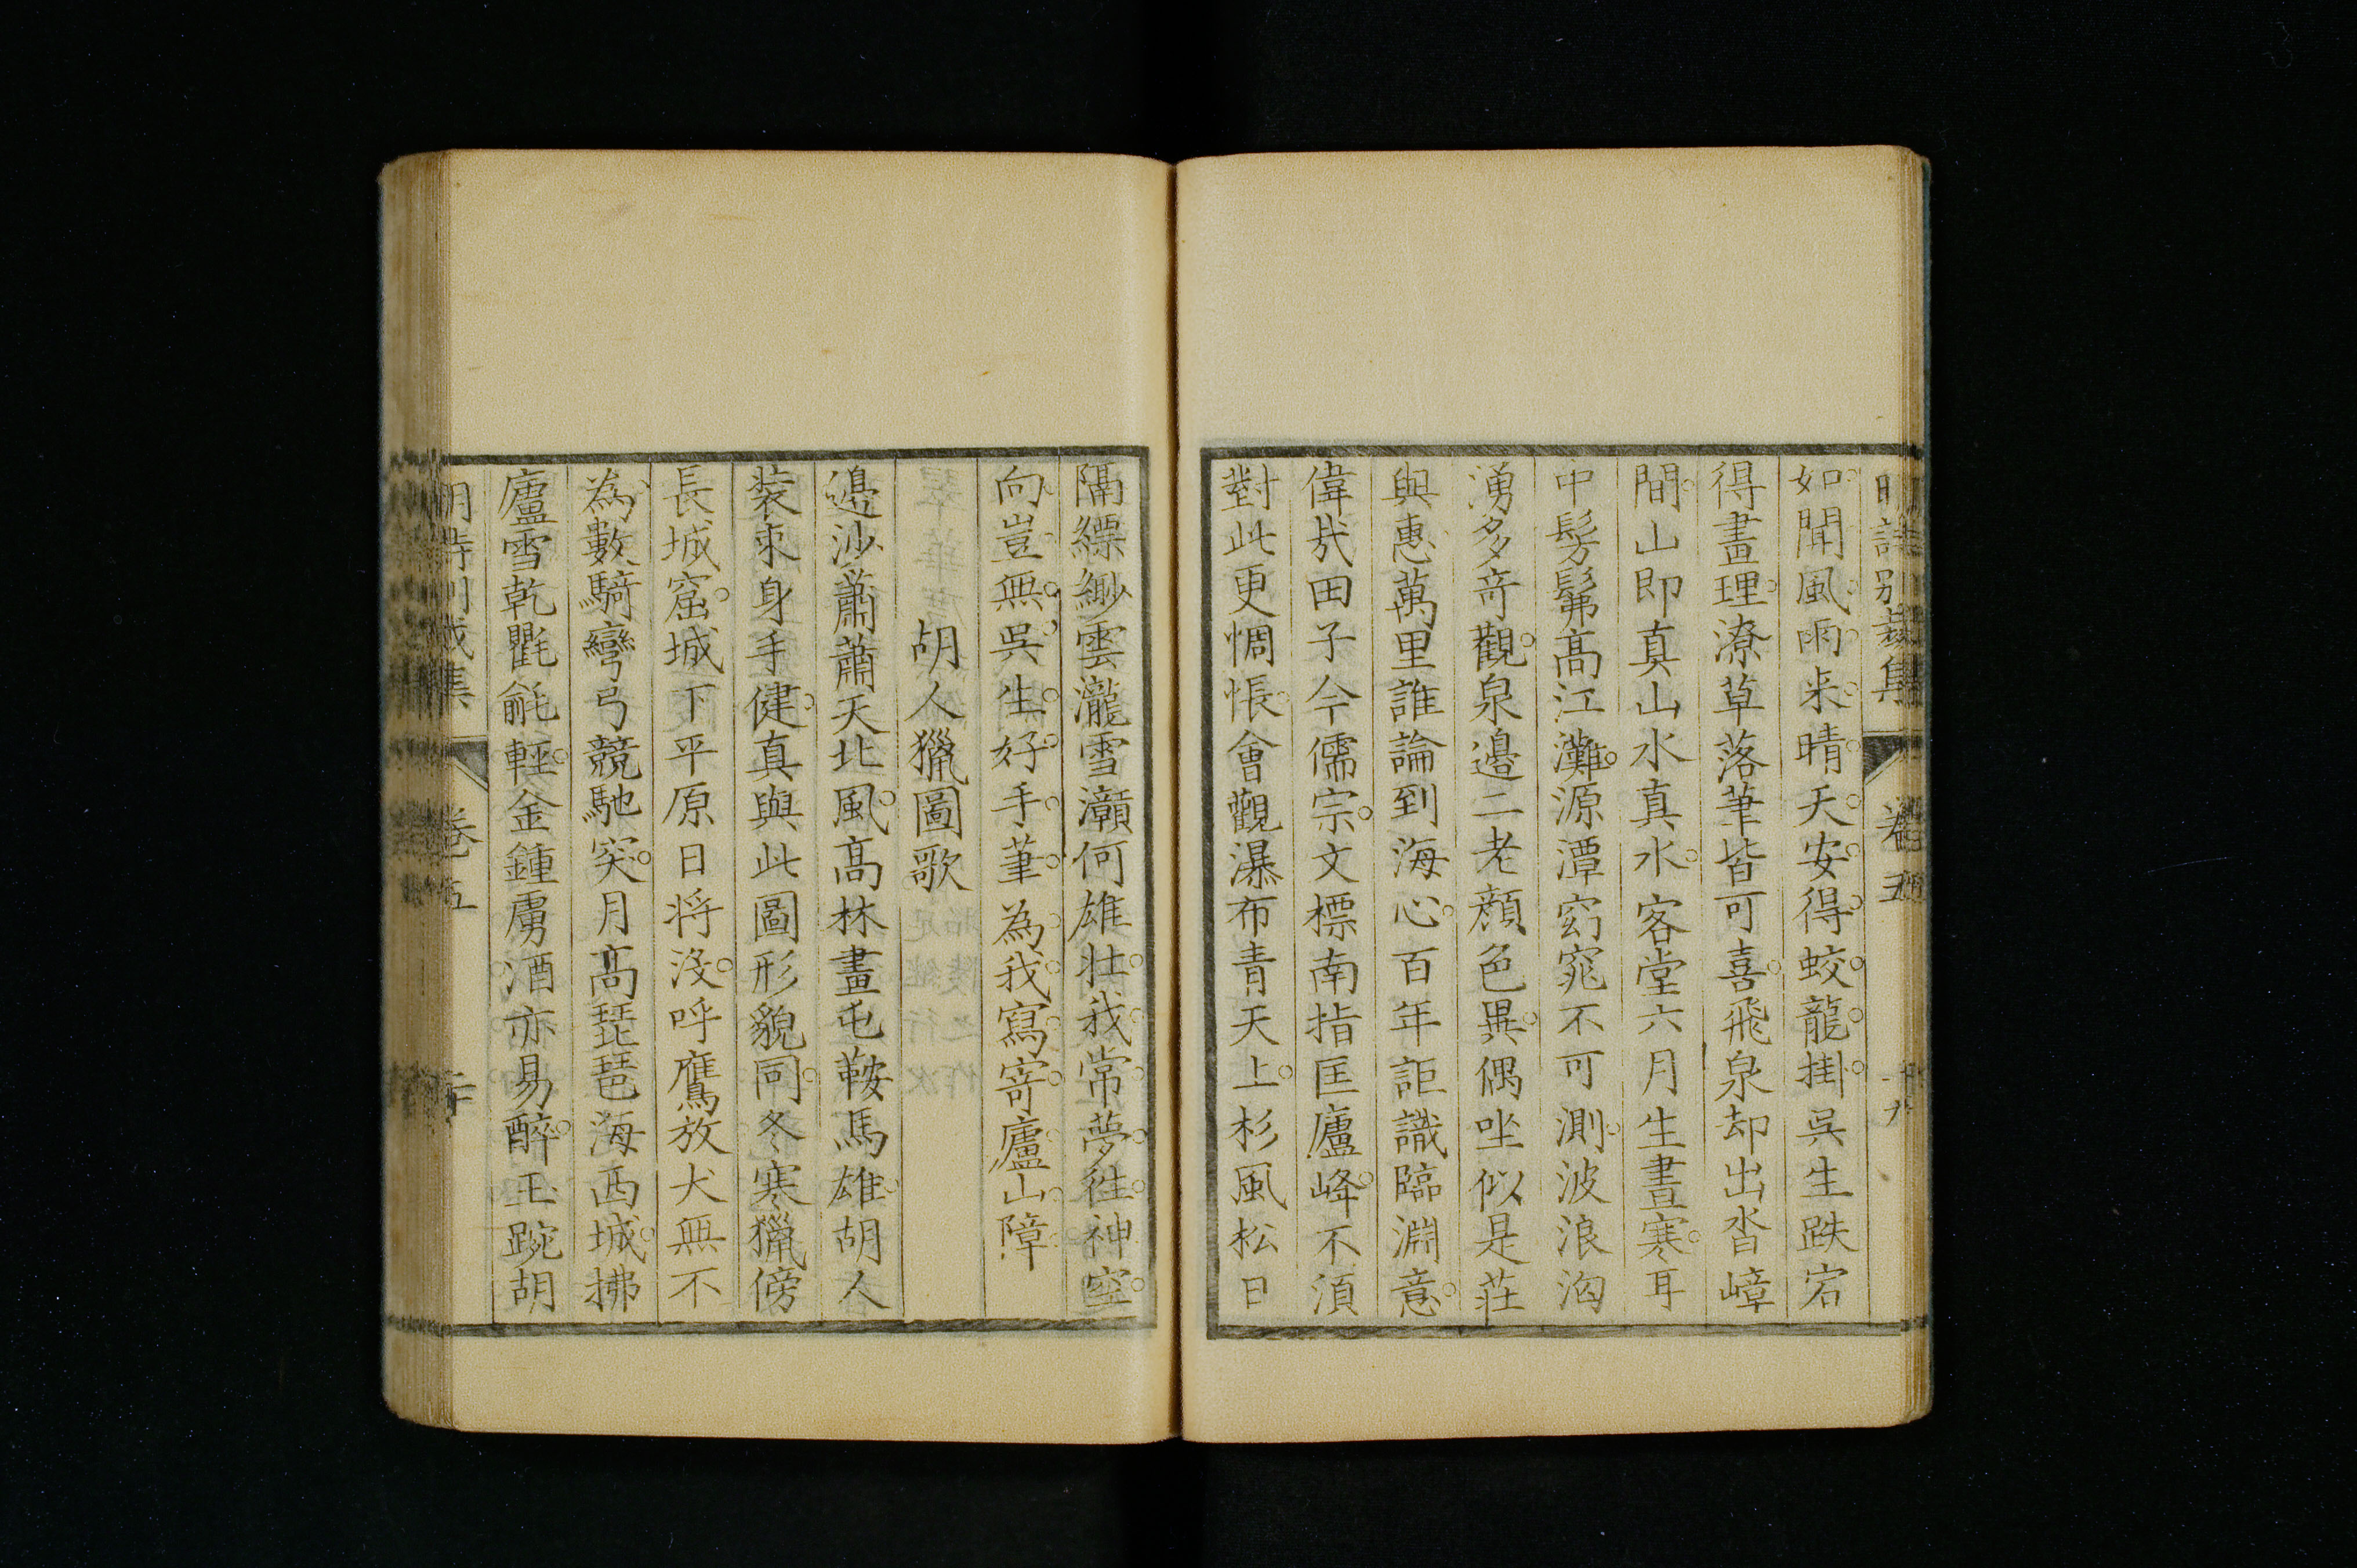 明詩別裁集 卷五 十九
如聞風雨来晴天安得蛟龍掛吳生跌宕
得畫理潦草落筆皆可喜飛泉却出沓嶂
間山即真山水真水客堂六月生晝寒耳
中髣髴高江灘源潭窈窕不可測波浪洶
湧多竒觀泉邉二老顔色異偶坐似是莊
與惠萬里誰論到海心百年詎識臨淵意
偉㢤田子今儒宗文標南指匡廬峰不須
對此更惆悵會觀瀑布青天上杉風松日
隔縹緲雲瀧雪灝何雄壯我常夢徃神空
向豈無吳生好手筆為我寫寄廬山障
胡人獵圖歌
邉沙蕭蕭天北風高林畫屯鞍馬雄胡人
裝束身手健真與此圖形貌同冬寒獵傍
長城窟城下平原日将沒呼鷹放犬無不
為數騎彎弓競馳突月高琵琶海西城拂
廬雪乾氍毹輕金鍾虜酒亦易醉玉踠胡
明詩別裁集 卷五 二十